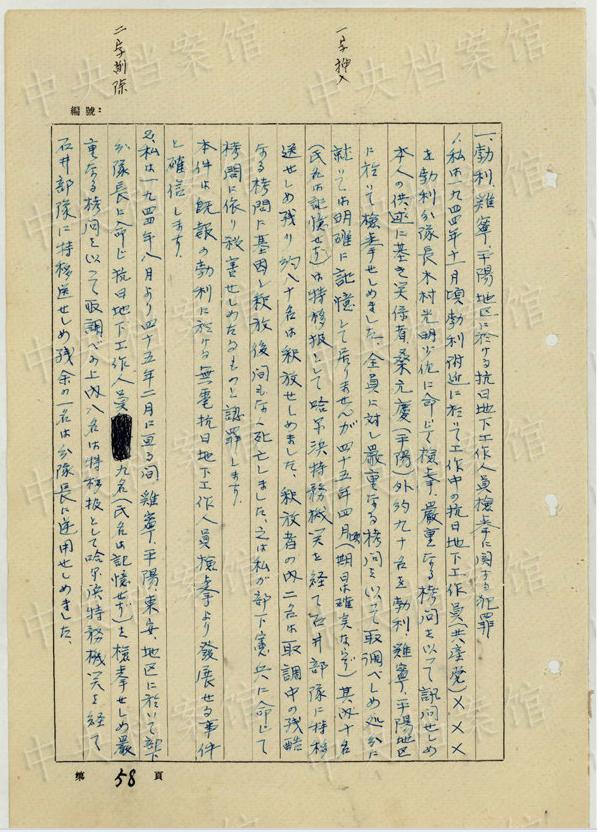 一字挿入
二字削除
編號：
一、勃利、雞寧、平陽地区に於ける抗日地下工作人員検挙に関する犯罪
1、私は一九四四年十一月頃勃利附近に於いて工作中の抗日地下工作員（共産党）×××
を勃利分隊長木村光明少佐に命じて検挙、厳重なる拷問を以って訊問せしめ
本人の供述に基き関係者、桑元慶（平陽）外約九十名を勃利、雞寧、平陽地区
に於いて検挙せしめました、全員に対し厳重なる拷問を以って取調べしめ処分に
就いては明確に記憶して居りませんが四十五年四月頃（期日は確実ならず）其の内十名
（氏名は記憶せず）は特移扱として哈尔浜特務機関を経て石井部隊に特移
送せしめ残り約八十名は釈放せしめました、釈放者の内二名は取調中の残酷
なる拷問に基因し釈放後間もなく死亡しました、之は私が部下憲兵に命じて
拷問に依り殺害せしめたるものと認罪します。
本件は既報の勃利に於ける無電抗日地下工作人員検挙より発展せる事件
と確信します。
2、私は一九四四年八月より四十五年二月に亘る間、雞寧、平陽、東安、地区に於いて部下
分隊長に命じ抗日地下工作人員九名（氏名は記憶せず）を検挙せしめ厳
重なる拷問を以って取調べの上内八名は特移扱として哈尔浜特務機関を経て
石井部隊に特移送せしめ残余の一名は分隊長に逆用せしめました。
第 58 頁
中央档案馆